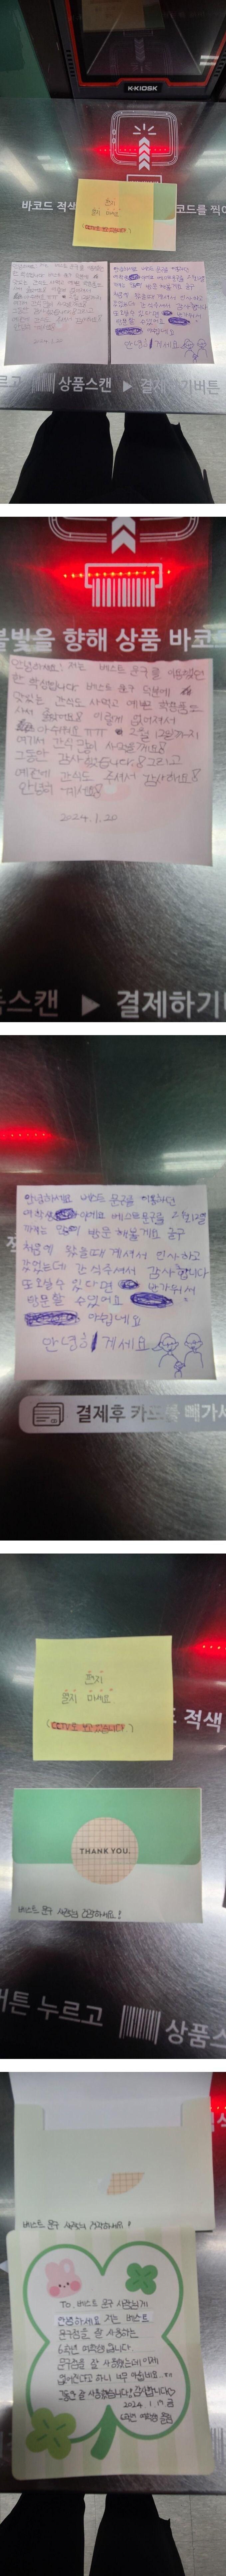 K-KIOSK
바코드 적색
코드를 찍어
편지
뜯지 마세요.
르고
상품스캔 ▶ 결제
기버튼
불빛을 향해 상품 바코
안녕하세요! 저는 베스트 문구를 이용했던
한 학생입니다 베스트 문구 덕분에
맛있는 간식도 사먹고 예쁜 학용품도
사서 좋았어요8 이렇게 없어져서
아쉬워요 ㅠㅠ 2월 12일까지
여기서 간식 많이 사먹을게요8
그동안 감사했습니다.8 그리고
예전에 간식도 주셔서 감사해요8
안녕히 계세요8
2024.1.20
스캔 ▶ 결제하기
안녕하세요 베스트 문구를 이용하던
여학생 이에요 베스트문구를 2월12일
까지는 많이 방문 해볼게요 문구
처음에 왔을때 계셔서 인사하고
갔었는데 간식주셔서 감사합니다
또 오실수 있다면 반가워서
방문할 수있어요
아쉽네요
안녕히 계세요
결제후 카드를 빼가세
편지
뜯지 마세요.
적색
THANK YOU.
베스트 문구 사장님 건강하세요!
버튼 누르고
상품스
베스트 문구 사장님 건강하세요!
To. 베스트 문구 사장님께
안녕하세요 저는 베스트
문구점을 잘 사용하는
6학년 여학생입니다
문구점을 잘 사용했는데 이제
없어진다고 하니 너무 아쉽네요..ㅠㅠ
그동안 잘 사용했습니다. 감사합니다♡
2024. 1
6학년 여학생 올림